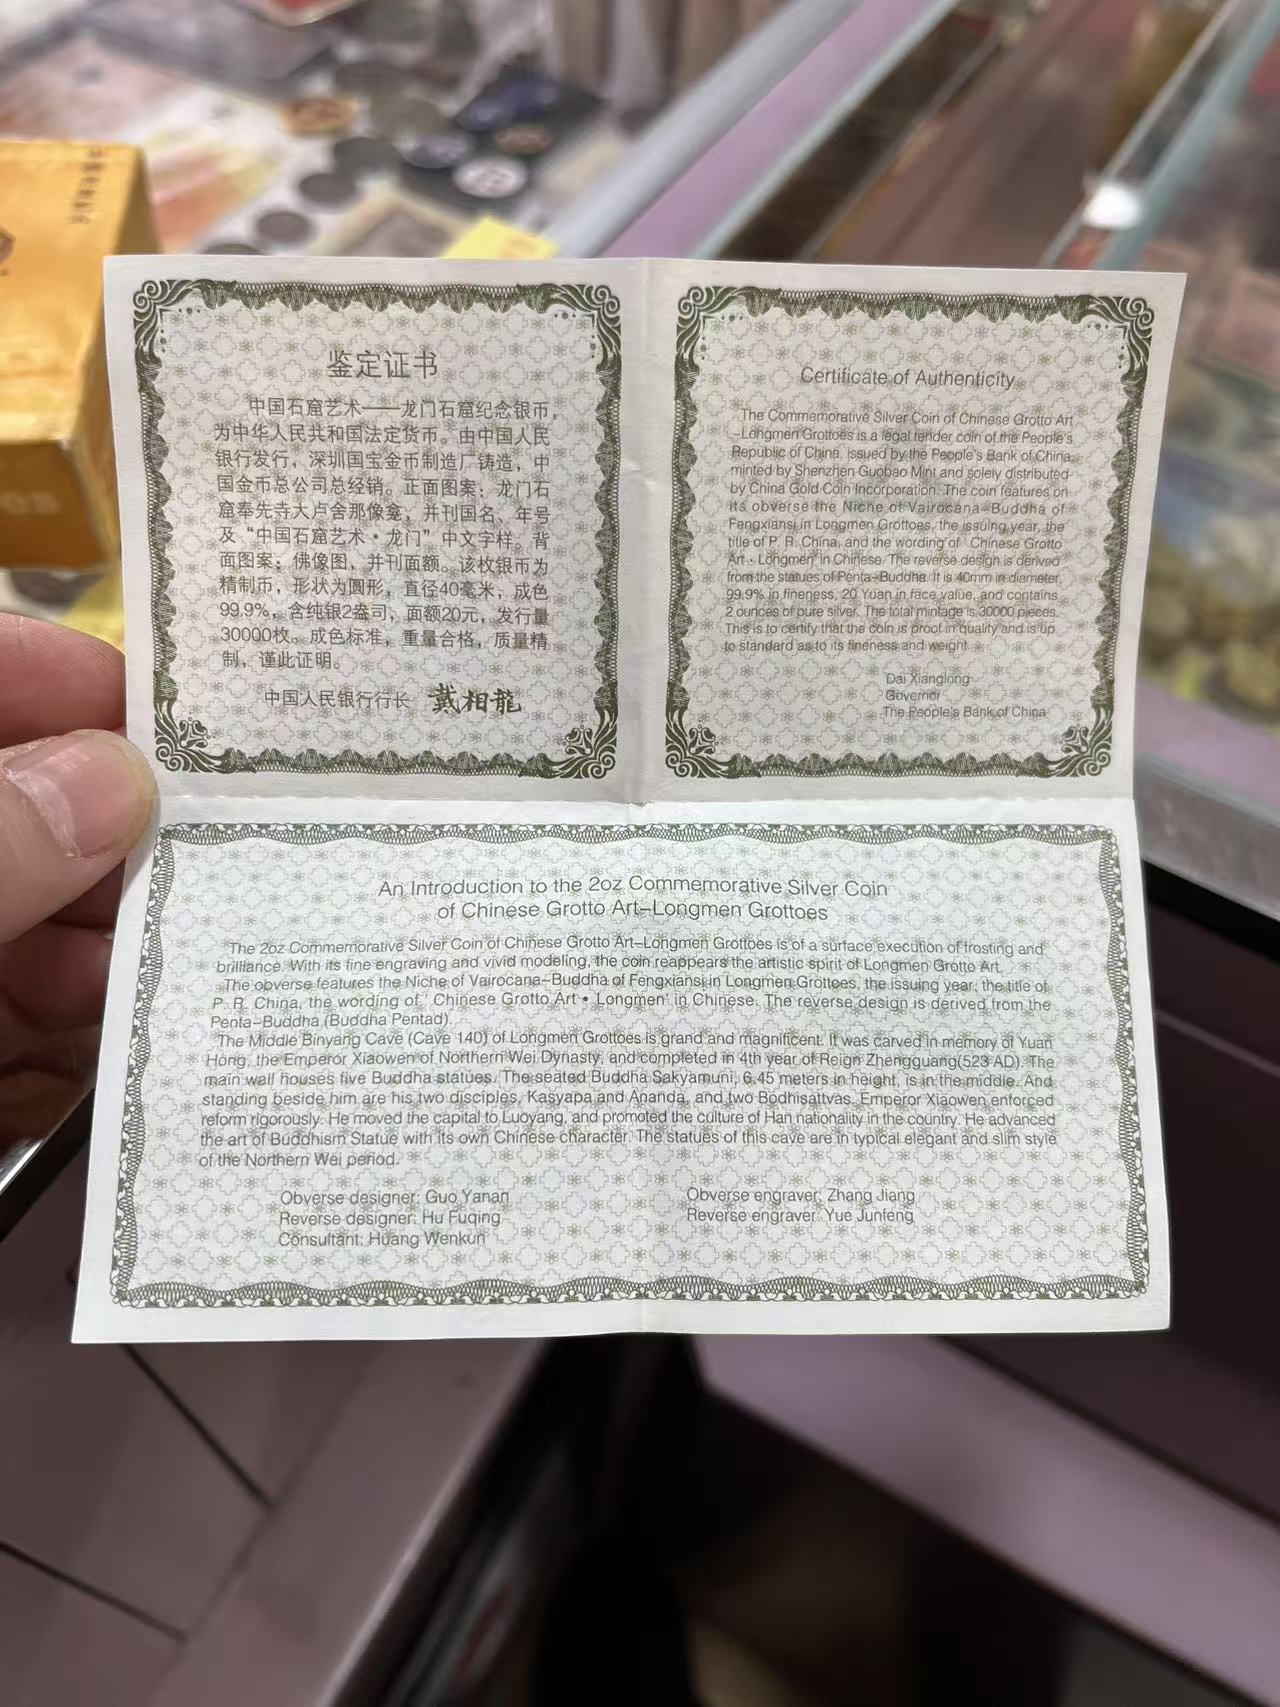 鉴定证书
中国石窟艺术——龙门石窟纪念银币,
为中华人民共和国法定货币。由中国人民
银行发行，深圳国宝金币制造厂铸造，中
国金币总公司总经销。正面图案：龙门石
窟奉先寺大卢舍那像龛，并刊国名、年号
及“中国石窟艺术·龙门”中文字样。背
面图案：佛像图，并刊面额。该枚银币为
精制币，形状为圆形，直径40毫米，成色
99.9%，含纯银2盎司，面额20元，发行量
30000枚。成色标准，重量合格，质量精
制，谨此证明。
中国人民银行行长 戴相龍
Certificate of Authenticity
The Commemorative Silver Coin of Chinese Grotto Art
-Longmen Grottoes is a legal tender coin of the People's
Republic of China, issued by the People's Bank of China,
minted by Shenzhen Guobao Mint and solely distributed
by China Gold Coin Incorporation. The coin features on
its obverse the Niche of Vairocana-Buddha of
Fengxiansi in Longmen Grottoes, the issuing year, the
title of P. R. China, and the wording of ' Chinese Grotto
Art · Longmen' in Chinese. The reverse design is derived
from the statues of Penta-Buddha. It is 40mm in diameter,
99.9% in fineness, 20 Yuan in face value, and contains
2 ounces of pure silver. The total mintage is 30000 pieces.
This is to certify that the coin is proof in quality and is up
to standard as to its fineness and weight.
Dai Xianglong
Governor
The People's Bank of China
An Introduction to the 2oz Commemorative Silver Coin
of Chinese Grotto Art-Longmen Grottoes
The 2oz Commemorative Silver Coin of Chinese Grotto Art-Longmen Grottoes is of a surface execution of frosting and
brilliance. With its fine engraving and vivid modeling, the coin reappears the artistic spirit of Longmen Grotto Art.
The obverse features the Niche of Vairocana-Buddha of Fengxiansi in Longmen Grottoes, the issuing year, the title of
P. R. China, the wording of ' Chinese Grotto Art • Longmen' in Chinese. The reverse design is derived from the
Penta-Buddha (Buddha Pentad).
The Middle Binyang Cave (Cave 140) of Longmen Grottoes is grand and magnificent. It was carved in memory of Yuan
Hong, the Emperor Xiaowen of Northern Wei Dynasty, and completed in 4th year of Reign Zhengguang(523 AD). The
main wall houses five Buddha statues. The seated Buddha Sakyamuni, 6.45 meters in height, is in the middle. And
standing beside him are his two disciples, Kasyapa and Ananda, and two Bodhisattvas. Emperor Xiaowen enforced
reform rigorously. He moved the capital to Luoyang, and promoted the culture of Han nationality in the country. He advanced
the art of Buddhism Statue with its own Chinese character. The statues of this cave are in typical elegant and slim style
of the Northern Wei period.
Obverse designer: Guo Yanan
Reverse designer: Hu Fuqing
Consultant: Huang Wenkun
Obverse engraver: Zhang Jiang
Reverse engraver: Yue Junfeng